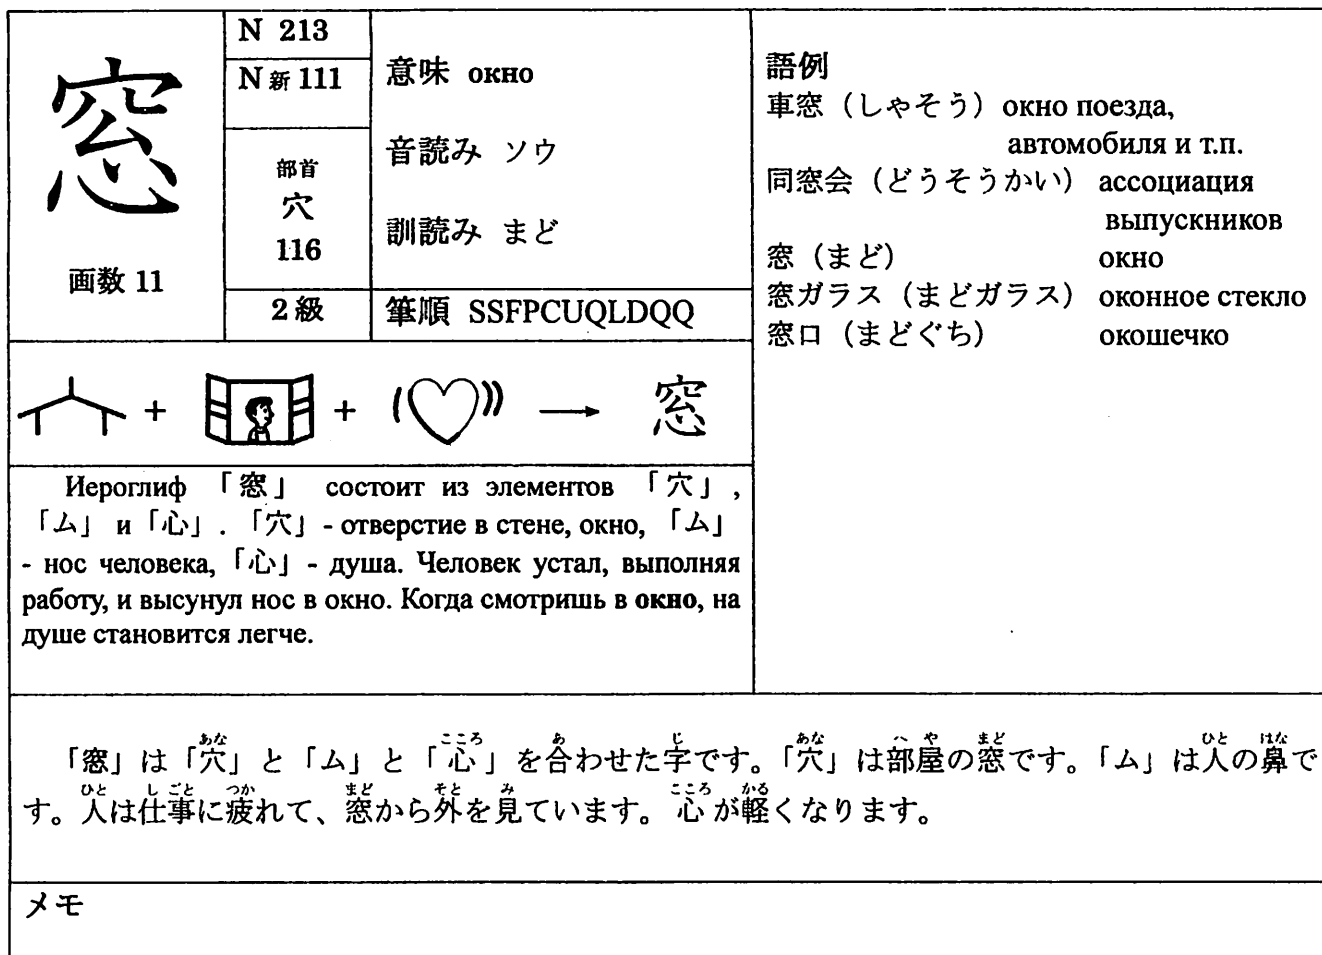 窓
画数 11
N 213
N新 111
部首
穴
116
2級
意味 окно
音読み ソウ
訓読み まど
筆順 SSFPCUQLDQQ
語例
車窓（しゃそう）окно поезда,
автомобиля и т.п.
同窓会（どうそうかい） ассоциация
выпускников
窓（まど） окно
窓ガラス（まどガラス） оконное стекло
窓口（まどぐち） окошечко
+ + → 窓
Иероглиф 「窓」 состоит из элементов 「穴」,
「ム」 и 「心」. 「穴」 - отверстие в стене, окно, 「ム」
- нос человека, 「心」 - душа. Человек устал, выполняя
работу, и высунул нос в окно. Когда смотришь в окно, на
душе становится легче.
あな こころ あ じ あな へや まど ひと はな
「窓」は「穴」と「ム」と「心」を合わせた字です。「穴」は部屋の窓です。「ム」は人の鼻で
ひと しごと つか まど そと み こころ かる
す。人は仕事に疲れて、窓から外を見ています。心が軽くなります。
メモ